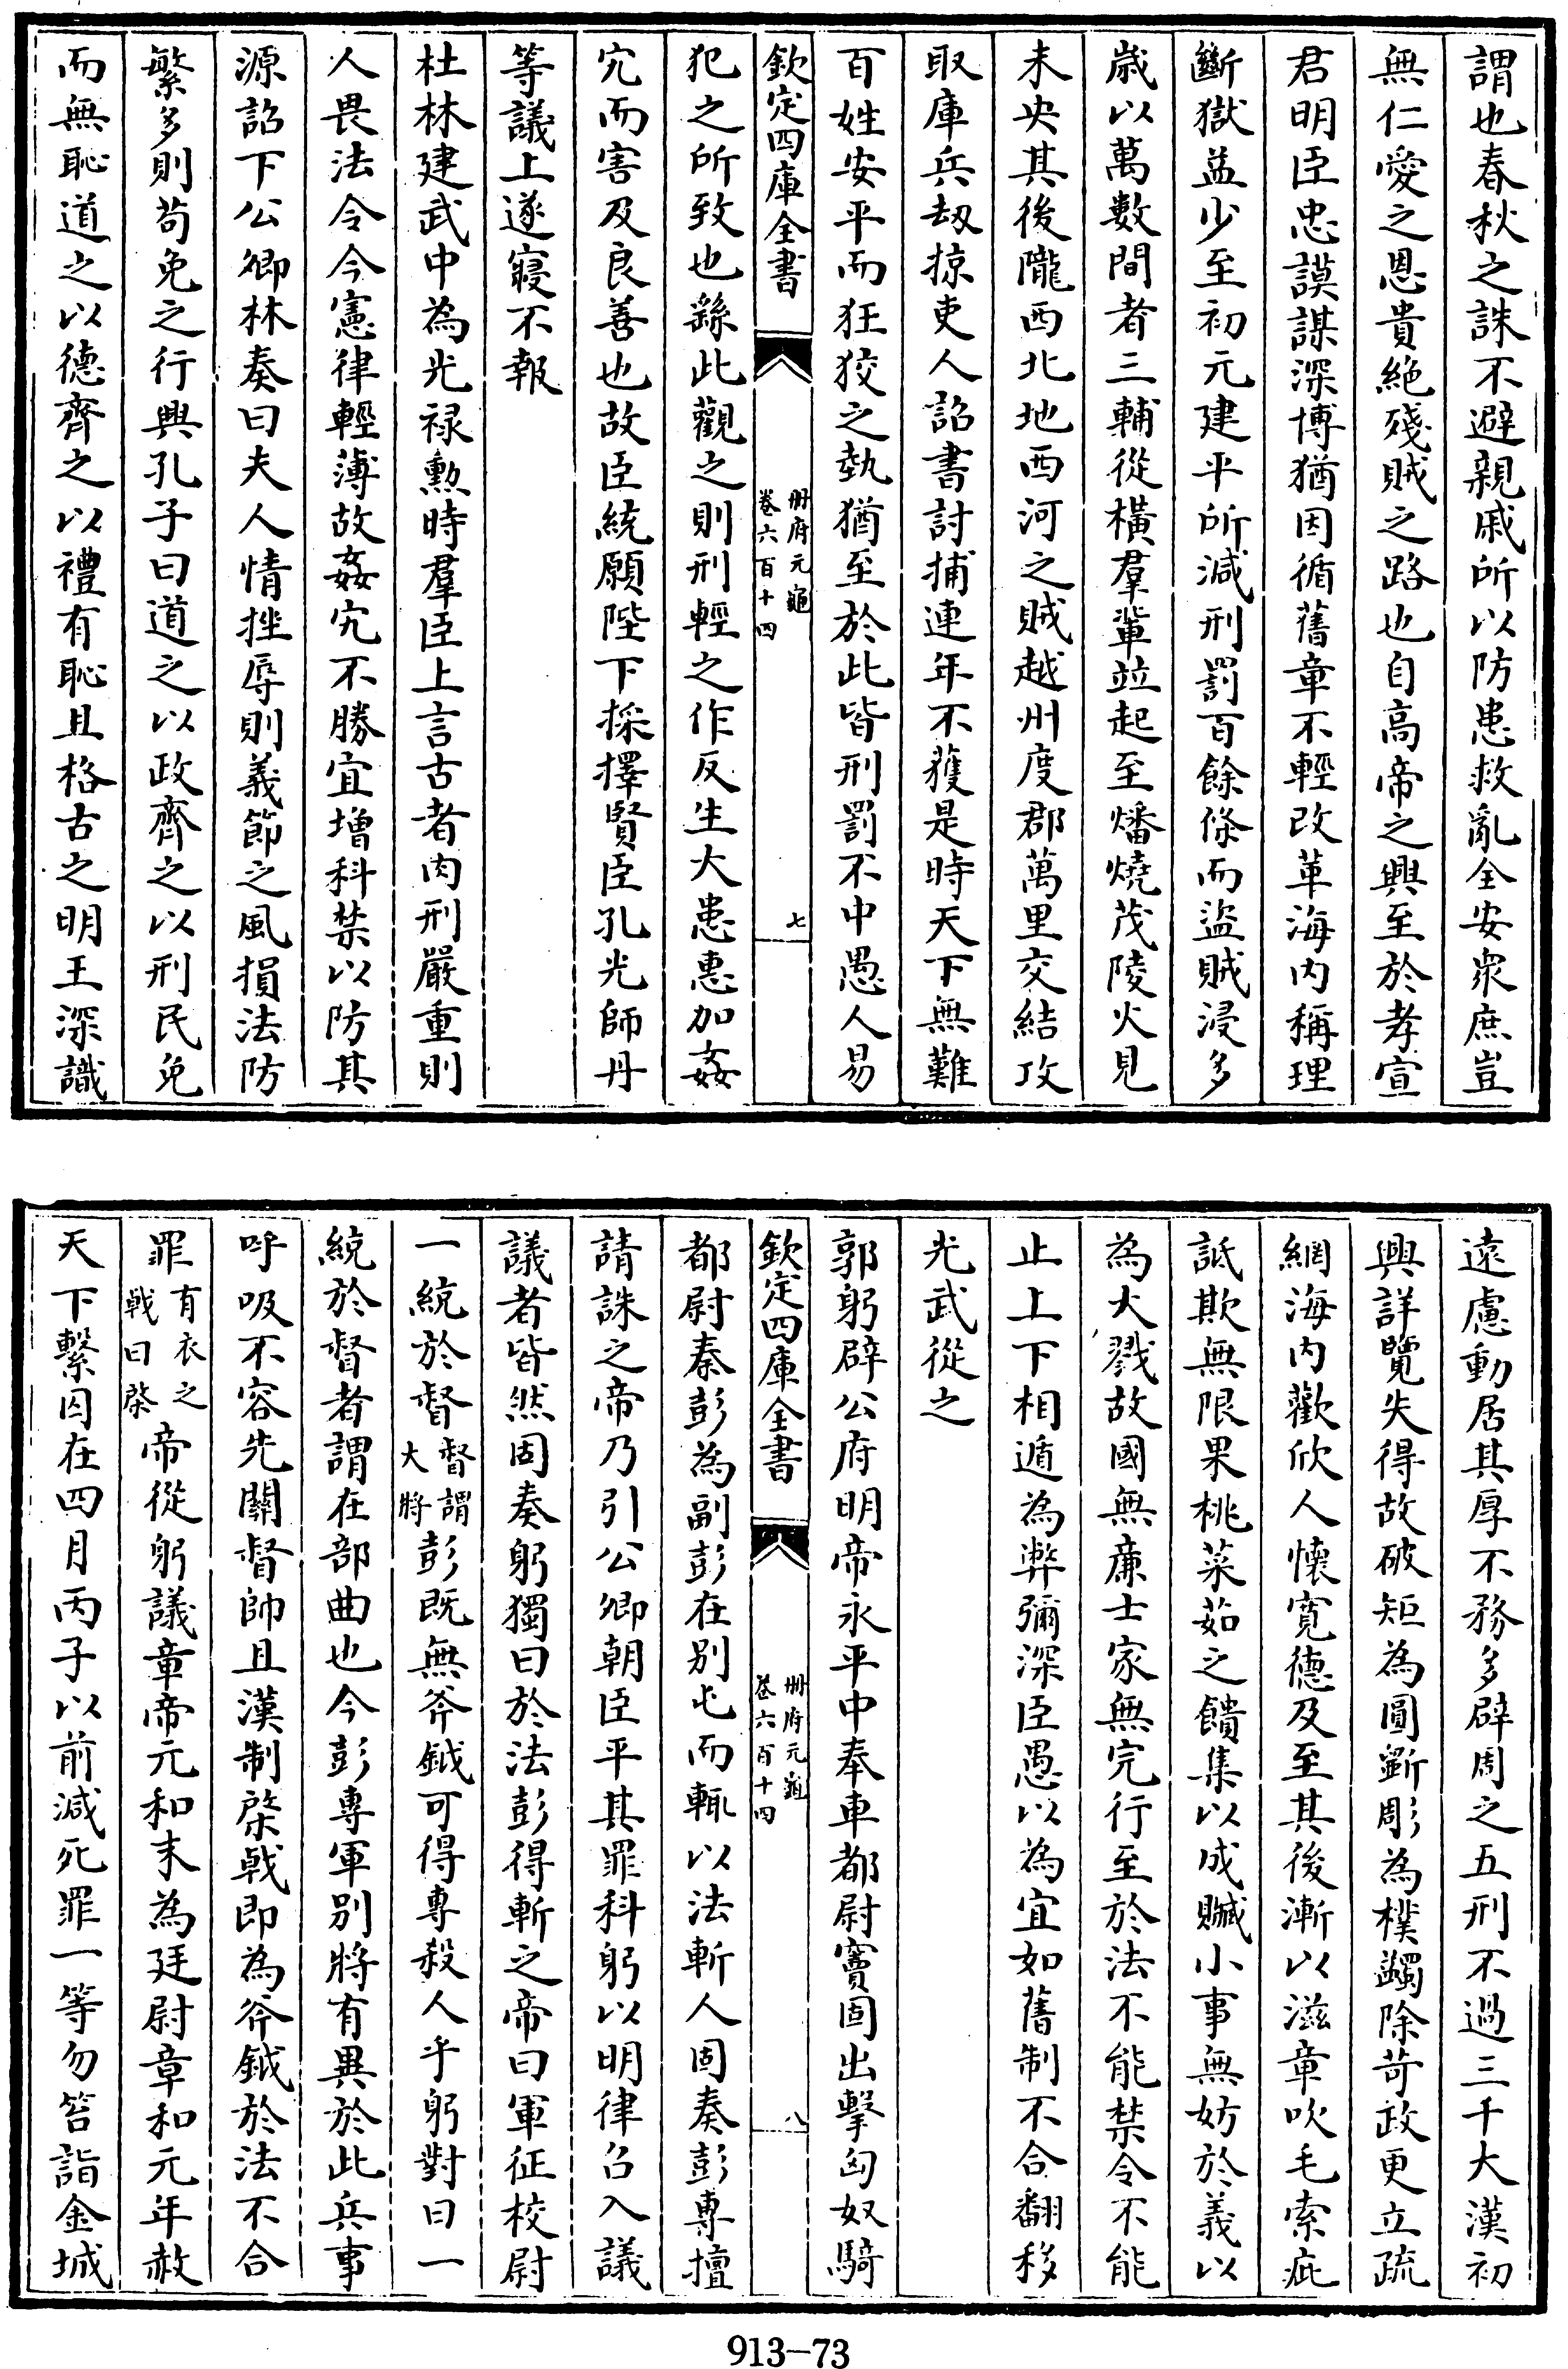 謂也春秋之誅不避親戚所以防患救亂全安衆庶豈
無仁愛之恩貴絶殘賊之路也自高帝之興至於孝宣
君明臣忠謨謀深博猶因循舊章不輕改革海内稱理
斷獄益少至初元建平所減刑罰百餘條而盜賊浸多
歲以萬數間者三輔從横羣輩竝起至燔燒茂陵火見
未央其後隴西北地西河之賊越州度郡萬里交結攻
取庫兵刼掠吏人詔書討捕連年不獲是時天下無難
百姓安平而狂狡之埶猶至於此皆刑罰不中愚人易
欽定四庫全書
册府元龜
卷六百十四
七
犯之所致也繇此觀之則刑輕之作反生大患惠加姦
宄而害及良善也故臣統願陛下採擇賢臣孔光師丹
等議上遂寢不報
杜林建武中為光禄勲時羣臣上言古者肉刑嚴重則
人畏法令今憲律輕薄故姦宄不勝宜增科禁以防其
源詔下公卿林奏曰夫人情挫辱則義節之風損法防
繁多則苟免之行興孔子曰道之以政齊之以刑民免
而無恥道之以德齊之以禮有恥且格古之明王深識
遠慮動居其厚不務多辟周之五刑不過三千大漢初
興詳覽失得故破矩為圓斵彫為樸蠲除苛政更立疏
網海内歡欣人懷寛德及至其後漸以滋章吹毛索疵
詆欺無限果桃菜茹之饋集以成贓小事無妨於義以
為大戮故國無亷士家無完行至於法不能禁令不能
止上下相遁為弊彌深臣愚以為宜如舊制不合翻移
光武從之
郭躬辟公府明帝永平中奉車都尉竇固出擊匈奴騎
欽定四庫全書
册府元龜
卷六百十四
八
都尉秦彭為副彭在别屯而輒以法斬人固奏彭專擅
請誅之帝乃引公卿朝臣平其罪科躬以明律召入議
議者皆然固奏躬獨曰於法彭得斬之帝曰軍征校尉
一統於督督謂大將彭既無斧鉞可得專殺人乎躬對曰一
統於督者謂在部曲也今彭專軍别將有異於此兵事
呼吸不容先關督帥且漢制棨戟即為斧鉞於法不合
罪有衣之戟曰棨帝從躬議章帝元和末為廷尉章和元年赦
天下繫囚在四月丙子以前減死罪一等勿笞詣金城
913-73